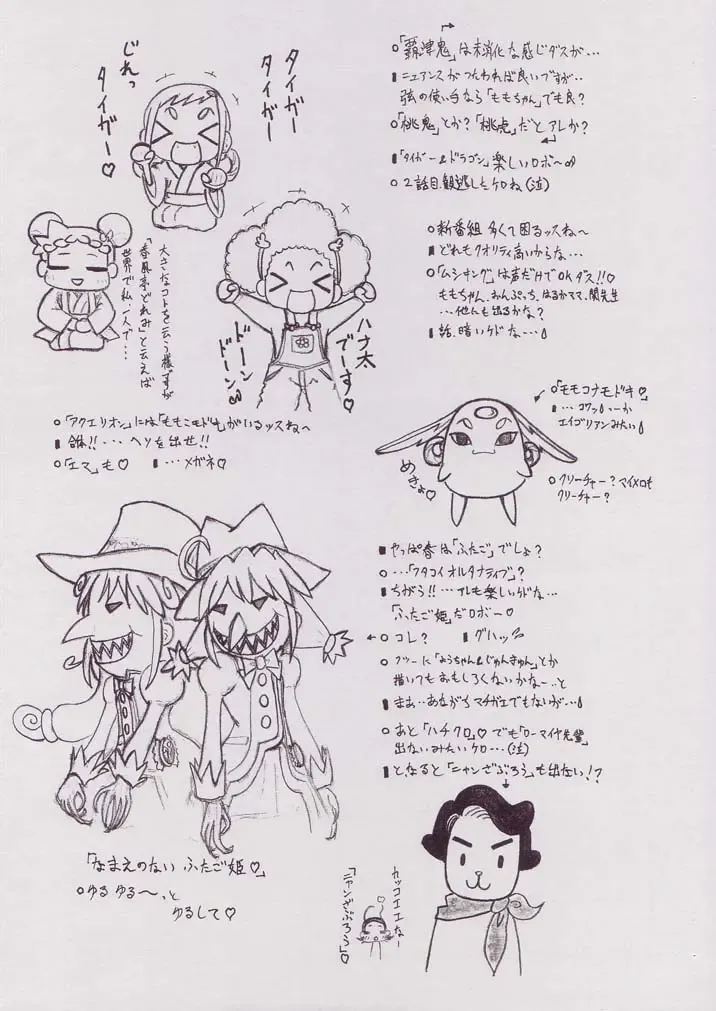 タイガー
タイガー
じれっ
タイガー♡
大きなコトを云う様ですが
「春風亭どれみ」と云えば
世界で私一人で…
ハナ太
でーす♡
ドーン
ドーン
○「覇津鬼」は未消化な感じダスが…
▮ニュアンスがつたわれば良いですが…
弦の使い手なら「ももちゃん」でも良?
○「桃鬼」とか?「桃虎」だとアレか?
▮「タイガー&ドラゴン」楽しいロボ〜∞
○2話目観逃したケロね(泣)
○新番組多くて困るッスね〜
▮どれもクオリティ高いからな…
○「ムシキング」は声だけでOKダス!!
ももちゃん、おんぷっち、はるかママ、関先生
…他にも出るかな?
▮話、暗いケドな…
○「アクエリオン」には「ももこモドキ」がいるッスね〜
▮合体!!…ヘソを出せ!!
○「エマ」も♡ ▮…メガネ♡
○「モモコナモドキ♡」
▮…コワッ いーか
エイゴリアンみたい
めきょ♡
○クリーチャー?マイメロも
クリーチャー?
▮やっぱ春は「ふたご」でしょ?
○…「フタコイオルタナティブ」?
▮ちがう!!…アレも楽しいケドな…
「ふたご姫」だロボー♡
←○コレ? ▮グハッ
○フツーに「みうちゃん&じゅんきゅん」とか
描いてもおもしろくないかなー…と
▮まぁ…あながちマチガエでもないが…
○あと「ハチクロ」♡でも「ローマイヤ先輩」
出ないみたいケロ…(泣)
▮と、なると「ニャンざぶろう」も出ない!?
「なまえのない ふたご姫♡」
○ゆるゆる〜っと
ゆるして♡
カッコエエなー
「ニャンざぶろう」♡